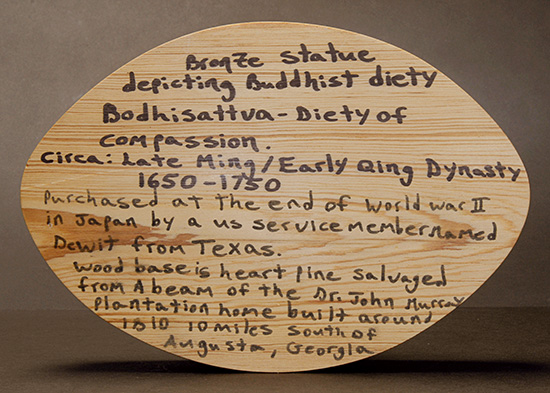 Bronze statue
depicting Buddhist diety
Bodhisattva - Diety of
compassion.
Circa: Late Ming / Early Qing Dynasty
1650 - 1750
Purchased at the end of World War II
in Japan by a us service member named
Dewit from Texas.
Wood base is heart pine salvaged
from A beam of the Dr. John Murray
plantation home built around
1810 10 miles south of
Augusta, Georgia